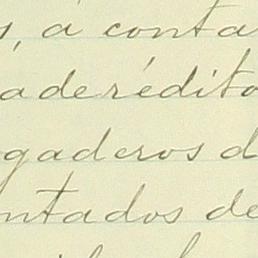 s, á conta
adeŕédito
gaderos d
ntados de